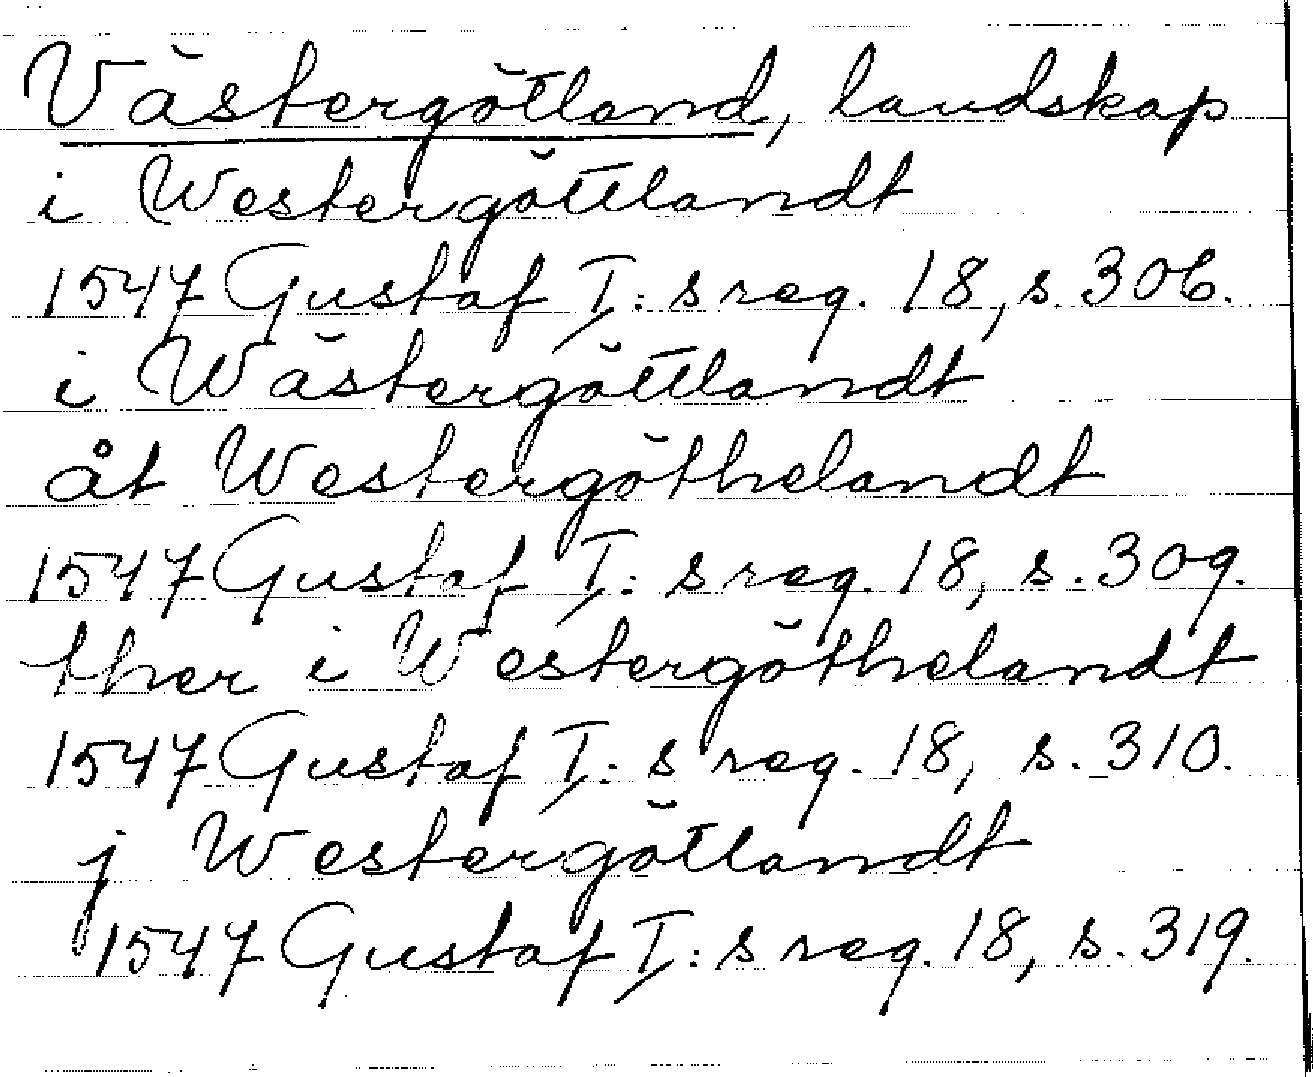 Västergötland, landskap
i Westergöttlandt
1547 Gustaf I: s reg. 18, s. 306.
i Wästergöttlandt
åt Westergöthelandt
1547 Gustaf I: s reg. 18, s. 309.
ther i Westergöthelandt
1547 Gustaf I: s reg. 18, s. 310.
j Westergötlandt
1547 Gustaf I: s reg. 18, s. 319.